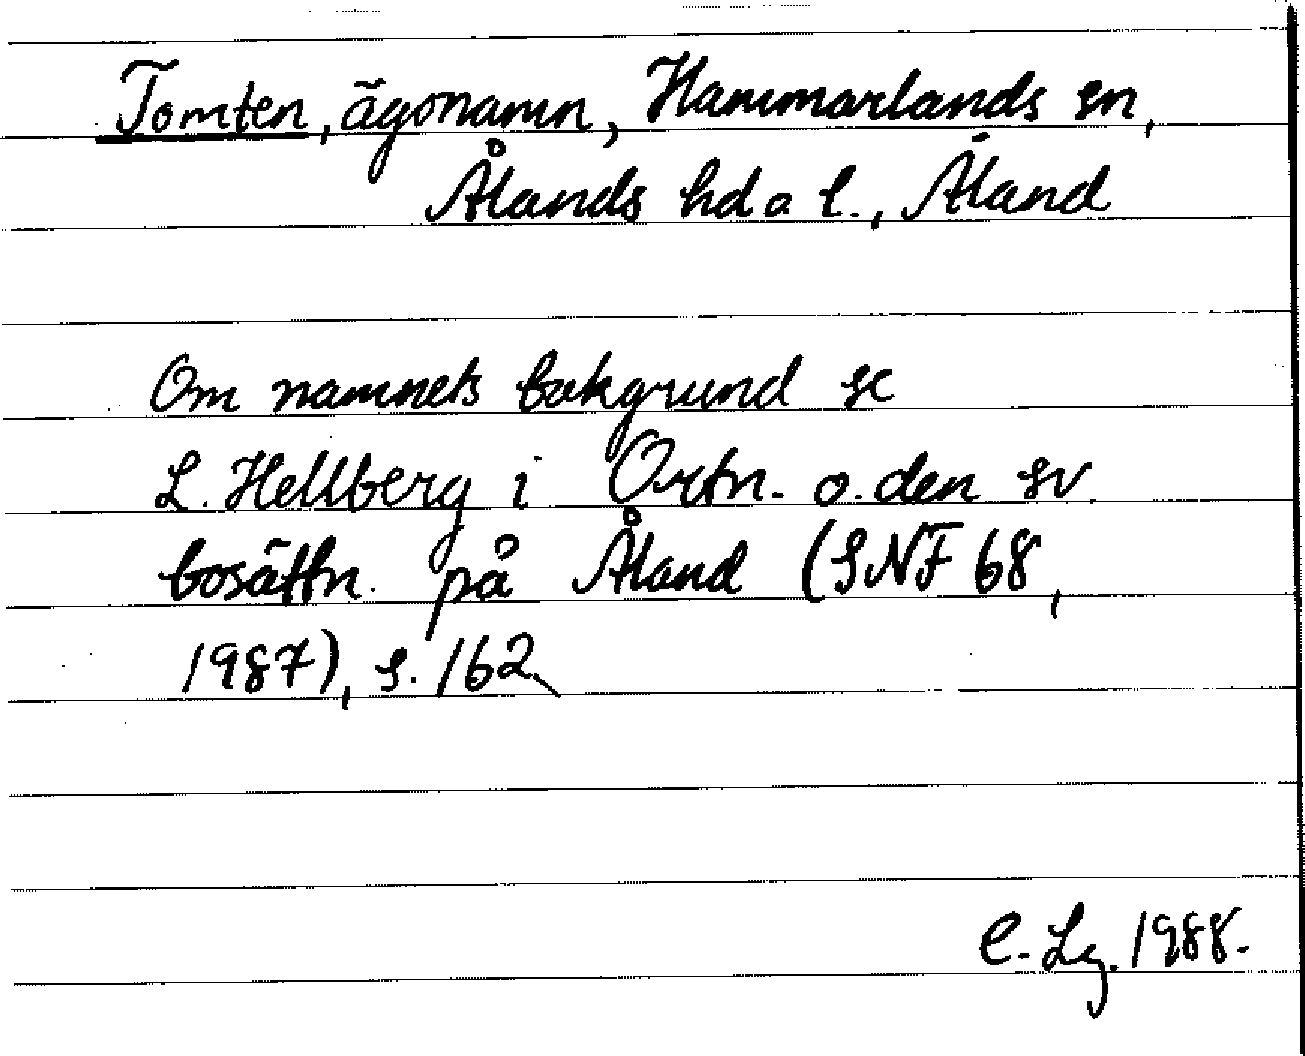 Tomten, ägonamn, Hammarlands sn,
Ålands hd o l., Åland
Om namnets bakgrund se
L. Hellberg i Ortn. o. den sv.
bosättn. på Åland (SNF 68,
1987), s. 162.
C. Lg. 1988.